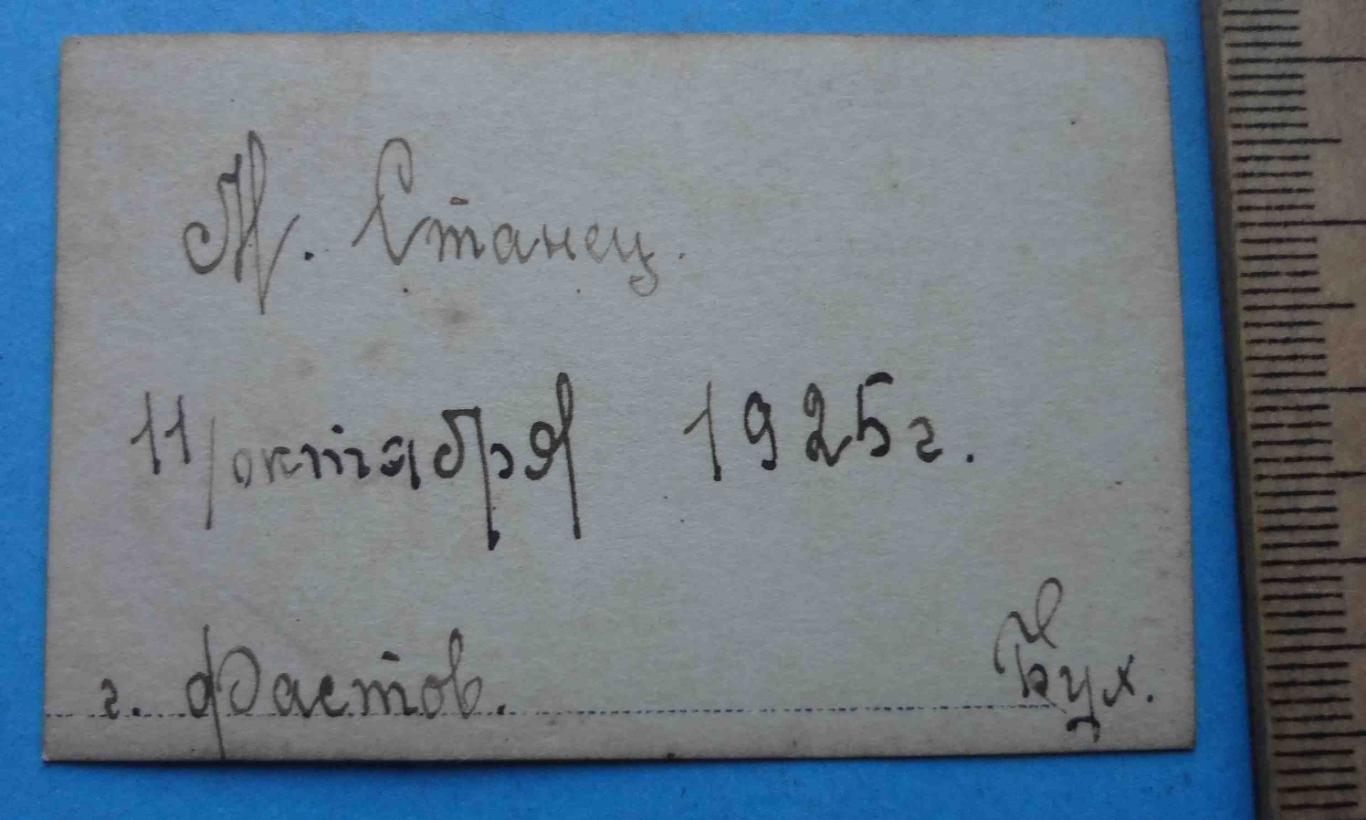 М. Станец.
11/октября 1925 г.
г. Фастов.
Бух.